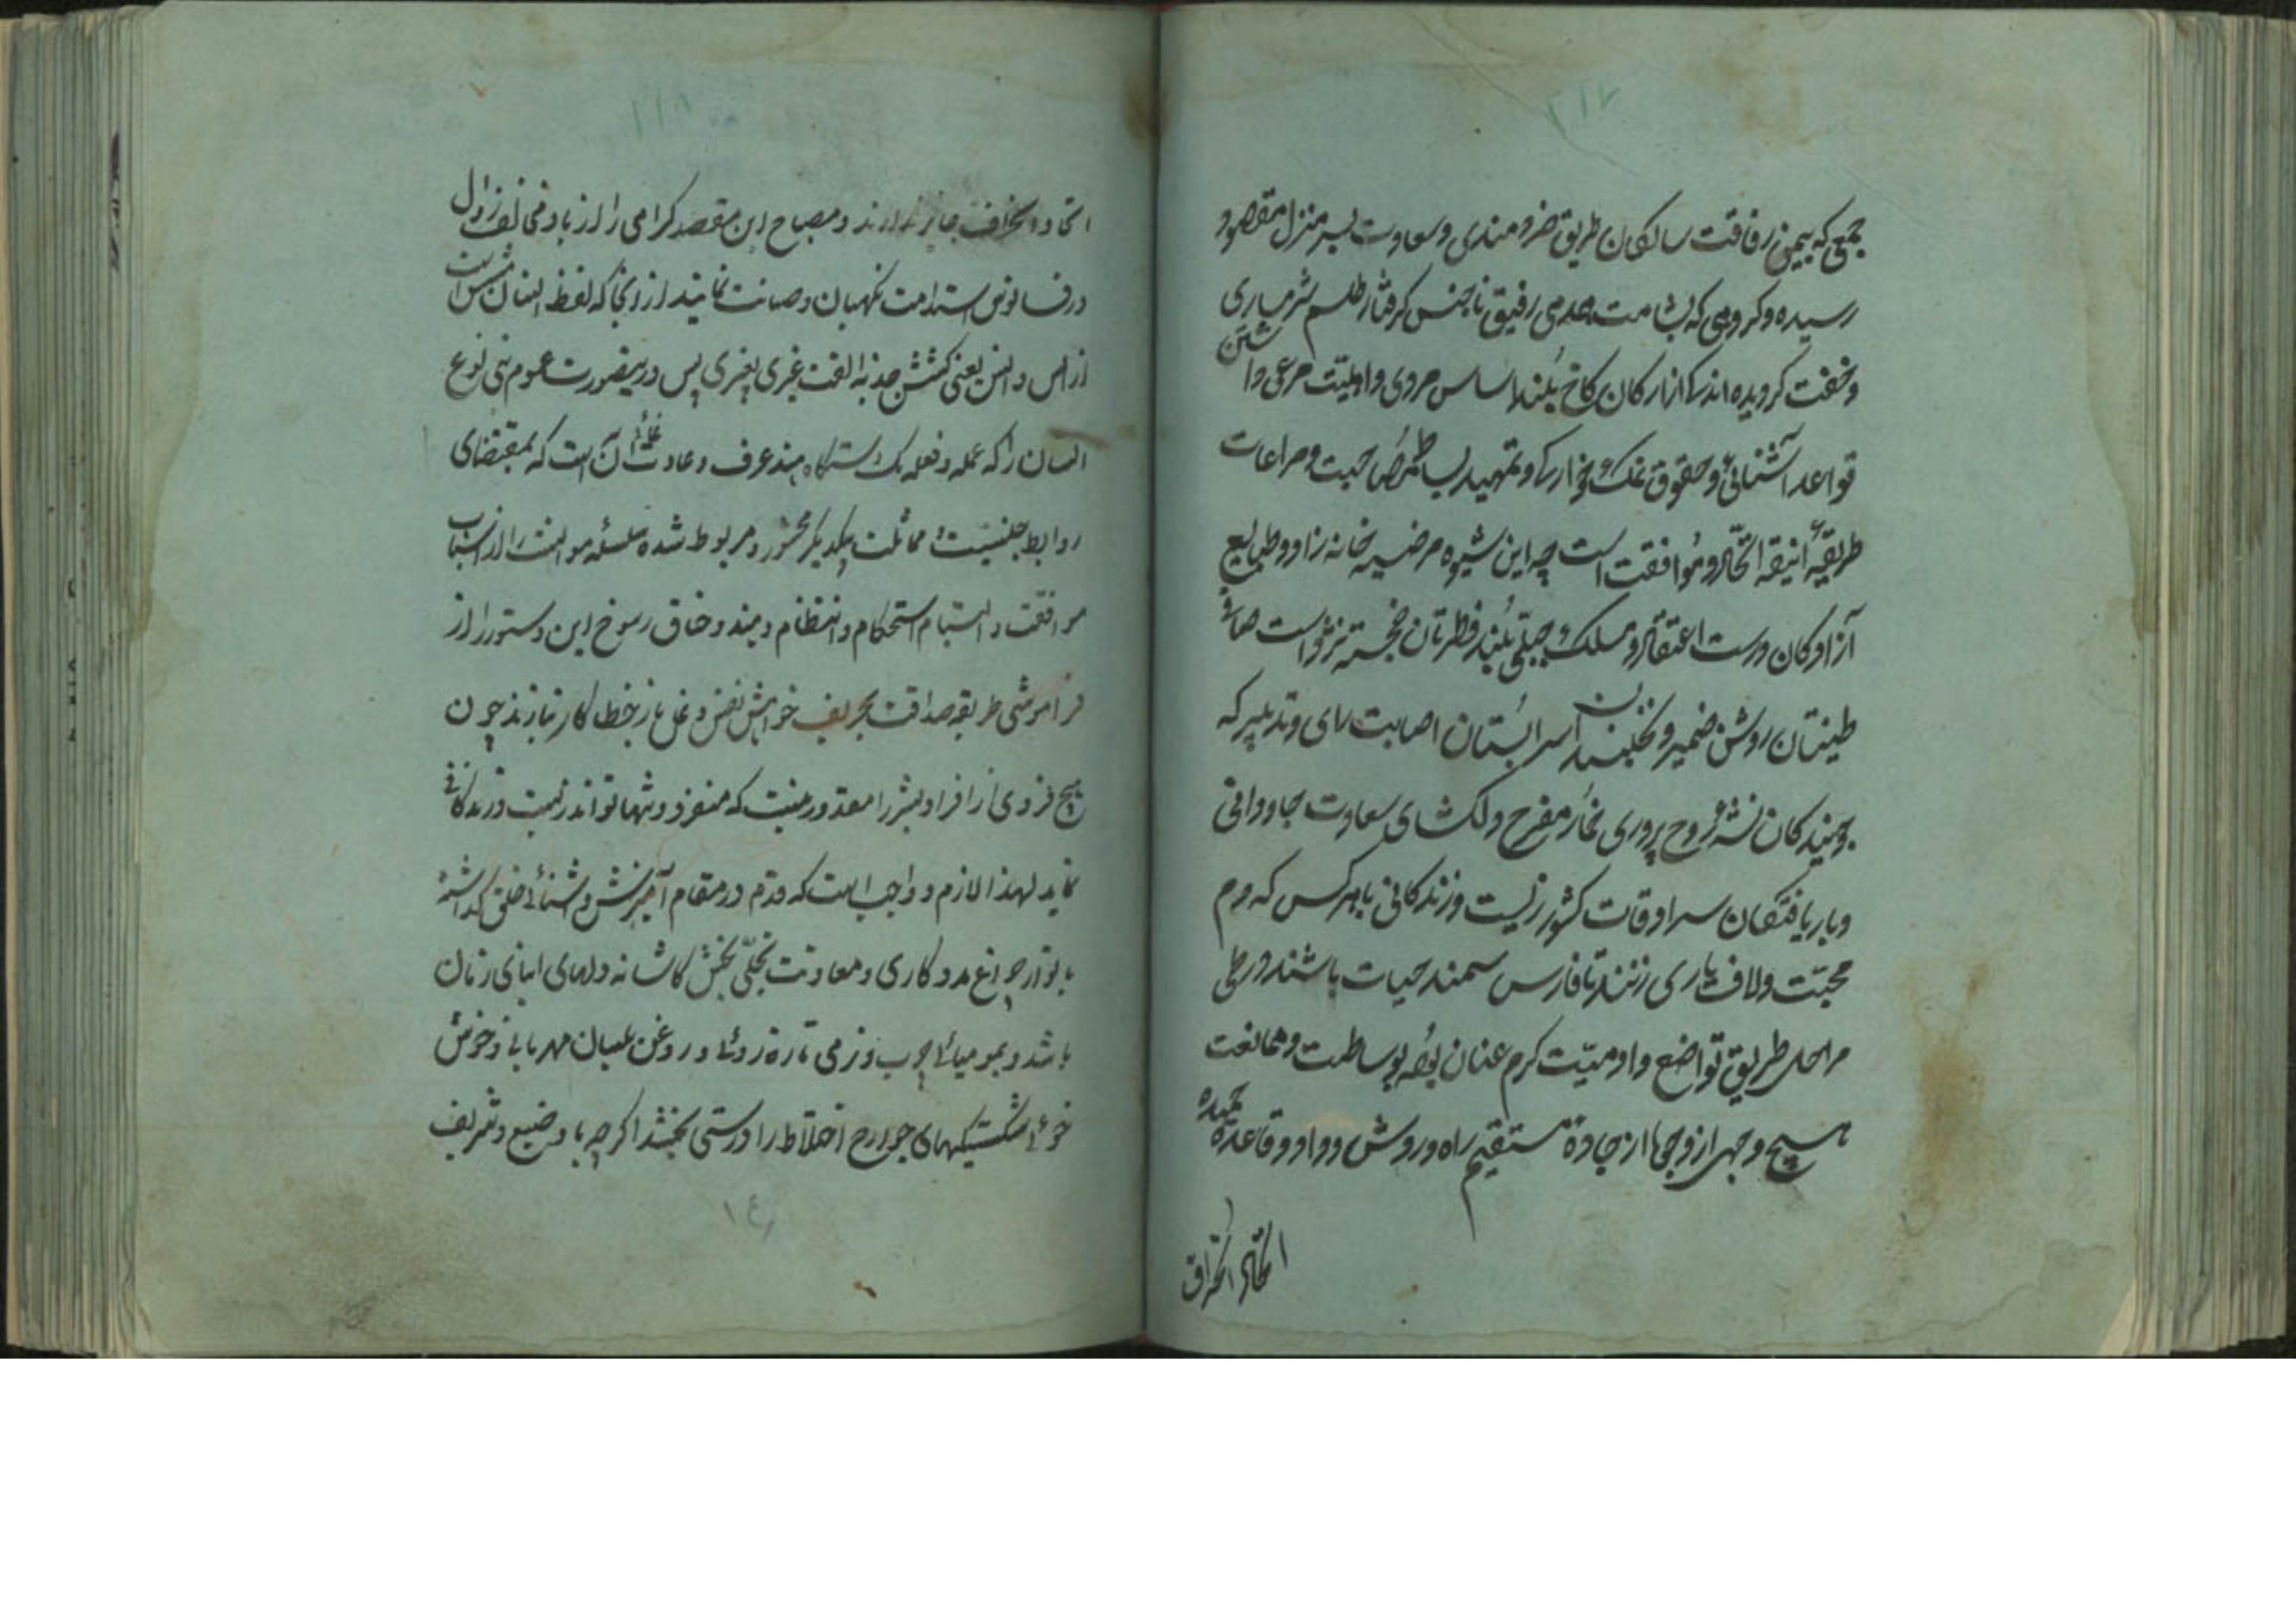 ۲۱۷
جمعی که بیمن رفاقت سالکان طریق خردمندی و سعادت بسر منزل مقصود
رسیده و کروهی که بشامت همدمی رفیق ناجنس کرفتار طلسم شرمساری
و خفت کردیده اند از ارکان کاخ بلند اساس مروی و اهلیت مرعی داشتن
قواعد آشنائی و حقوق نمک خوارکی و تمهید بساط مصاحبت و مراعات
طریقهٔ انیقه اتحاد و موافقت است چه این شیوه مرضیه خانه زاد و طبایع
آزادکان درست اعتقاد و مسلک جبلی بلند فطرتان خجسته نژاد است
طینتان روشن ضمیر و نخلبندان سرابستان اصابت رای و تدبیر که
جویندکان نشهٔ روح پروری مفرح دلکشای سعادت جاودانی
و باریافتکان سرادقات کشور زیست و زندکانی با هر کس که دم
محبت و لاف یاری زنند تا فارس سمند حیات باشند در طی
مراحل طریق تواضع و ادمیت کرم عنان بوده بوساطت و ممانعت
هیچ وجهی از وجوه از جادهٔ مستقیم راه و روش وداد و قاعدهٔ حمیده
اتحاد انحراف
۲۱۸
اتحاد انحراف جایز ندارند و مصباح این مقصد کرامی را از باد مخالف زوال
در فانوس استدامت نکهبان و صیانت نمایند از انجا که لفظ انسان مشتق است
از انس و انس یعنی کشش جذبه الفت غیری بغیری پس درینصورت عموم بنی نوع
انسان را که عمله و فعله یک دستکاه اند عرف و عادت آن است که بمقتضای
روابط جنسیت و مماثلت بیکدیکر محشور و مربوط شده سلسله موانست را از انتساب
موافقت و التیام استحکام و انتظام دهند و خاق رسوخ این دستور را از
فراموشی طریقه صداقت بحریف خواهش نفس دغاباز خطا کار نبازند چون
هیچ فردی از افراد بشر را مقدور نیست که منفرد و تنها تواند زیست و زندکانی
نماید لهذا لازم و واجب است که قدم در مقام آمیزش و آشنائی خلق کذاشته
بانوار چراغ مددکاری و معاونت تجلی بخش کاشانه دلهای ابنای زمان
باشد و بمومیائی چرب و نرمی تازه روئی و روغن بلسان مهربانی و خوش
خوئی شکستیکیهای جوارح اختلاط را درستی بخشد اکرچه با وضیع و شریف
۱٤۱